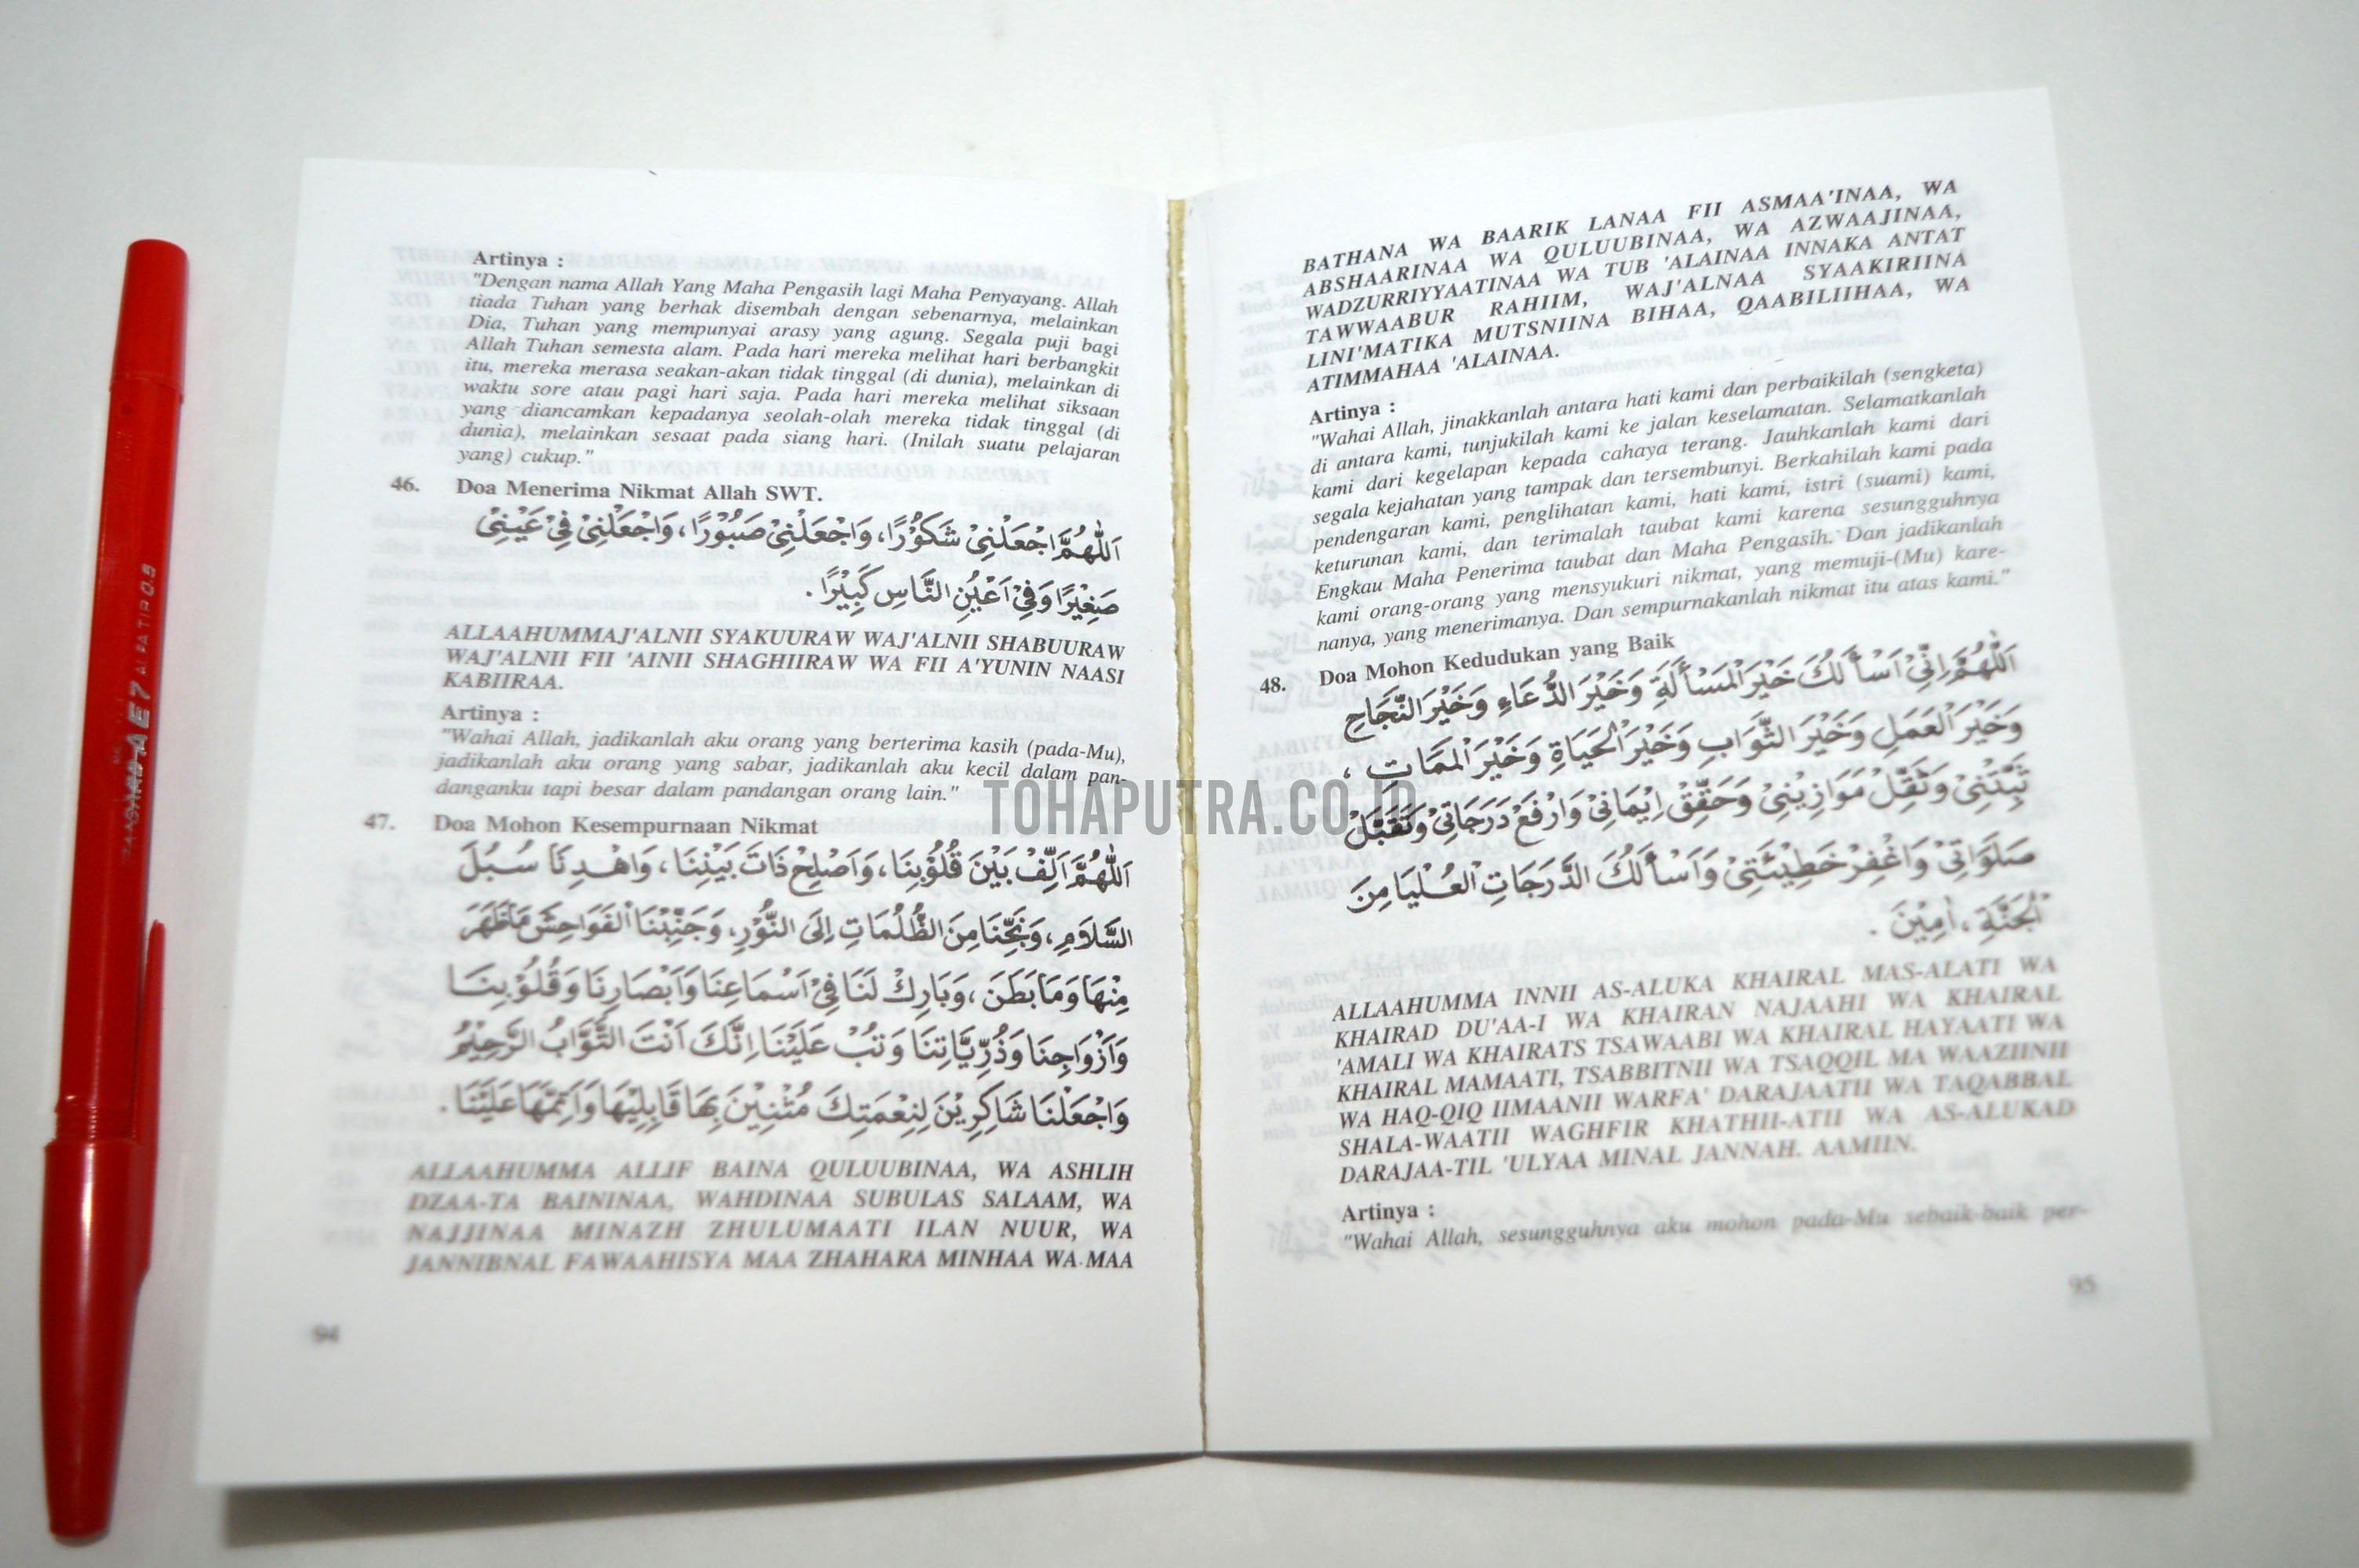 Artinya :
"Dengan nama Allah Yang Maha Pengasih lagi Maha Penyayang. Allah
tiada Tuhan yang berhak disembah dengan sebenarnya, melainkan
Dia, Tuhan yang mempunyai arasy yang agung. Segala puji bagi
Allah Tuhan semesta alam. Pada hari mereka melihat hari berbangkit
itu, mereka merasa seakan-akan tidak tinggal (di dunia), melainkan di
waktu sore atau pagi hari saja. Pada hari mereka melihat siksaan
yang diancamkan kepadanya seolah-olah mereka tidak tinggal (di
dunia), melainkan sesaat pada siang hari. (Inilah suatu pelajaran
yang) cukup."
46. Doa Menerima Nikmat Allah SWT.
اَللّٰهُمَّ اجْعَلْنِيْ شَكُوْرًا، وَاجْعَلْنِيْ صَبُوْرًا، وَاجْعَلْنِيْ فِيْ عَيْنِيْ
صَغِيْرًا وَفِيْ اَعْيُنِ النَّاسِ كَبِيْرًا.
ALLAAHUMMAJ'ALNII SYAKUURAW WAJ'ALNII SHABUURAW
WAJ'ALNII FII 'AINII SHAGHIIRAW WA FII A'YUNIN NAASI
KABIIRAA.
Artinya :
"Wahai Allah, jadikanlah aku orang yang berterima kasih (pada-Mu),
jadikanlah aku orang yang sabar, jadikanlah aku kecil dalam pan-
danganku tapi besar dalam pandangan orang lain."
47. Doa Mohon Kesempurnaan Nikmat
اَللّٰهُمَّ اَلِّفْ بَيْنَ قُلُوْبِنَا، وَاَصْلِحْ ذَاتَ بَيْنِنَا، وَاهْدِنَا سُبُلَ
السَّلَامِ، وَنَجِّنَا مِنَ الظُّلُمَاتِ اِلَى النُّوْرِ، وَجَنِّبْنَا الْفَوَاحِشَ مَا ظَهَرَ
مِنْهَا وَمَا بَطَنَ، وَبَارِكْ لَنَا فِيْ اَسْمَاعِنَا وَاَبْصَارِنَا وَقُلُوْبِنَا
وَاَزْوَاجِنَا وَذُرِّيَّاتِنَا وَتُبْ عَلَيْنَا اِنَّكَ اَنْتَ التَّوَّابُ الرَّحِيْمُ
وَاجْعَلْنَا شَاكِرِيْنَ لِنِعْمَتِكَ مُثْنِيْنَ بِهَا قَابِلِيْهَا وَاَتِمَّهَا عَلَيْنَا.
ALLAAHUMMA ALLIF BAINA QULUUBINAA, WA ASHLIH
DZAA-TA BAININAA, WAHDINAA SUBULAS SALAAM, WA
NAJJINAA MINAZH ZHULUMAATI ILAN NUUR, WA
JANNIBNAL FAWAAHISYA MAA ZHAHARA MINHAA WA MAA
94
BATHANA WA BAARIK LANAA FII ASMAA'INAA, WA
ABSHAARINAA WA QULUUBINAA, WA AZWAAJINAA,
WADZURRIYYAATINAA WA TUB 'ALAINAA INNAKA ANTAT
TAWWAABUR RAHIIM, WAJ'ALNAA SYAAKIRIINA
LINI'MATIKA MUTSNIINA BIHAA, QAABILIIHAA, WA
ATIMMAHAA 'ALAINAA.
Artinya :
"Wahai Allah, jinakkanlah antara hati kami dan perbaikilah (sengketa)
di antara kami, tunjukilah kami ke jalan keselamatan. Selamatkanlah
kami dari kegelapan kepada cahaya terang. Jauhkanlah kami dari
segala kejahatan yang tampak dan tersembunyi. Berkahilah kami pada
pendengaran kami, penglihatan kami, hati kami, istri (suami) kami,
keturunan kami, dan terimalah taubat kami karena sesungguhnya
Engkau Maha Penerima taubat dan Maha Pengasih. Dan jadikanlah
kami orang-orang yang mensyukuri nikmat, yang memuji-(Mu) kare-
nanya, yang menerimanya. Dan sempurnakanlah nikmat itu atas kami."
48. Doa Mohon Kedudukan yang Baik
اَللّٰهُمَّ اِنِّيْ اَسْأَلُكَ خَيْرَ الْمَسْأَلَةِ وَخَيْرَ الدُّعَاءِ وَخَيْرَ النَّجَاحِ
وَخَيْرَ الْعَمَلِ وَخَيْرَ الثَّوَابِ وَخَيْرَ الْحَيَاةِ وَخَيْرَ الْمَمَاتِ،
ثَبِّتْنِيْ وَثَقِّلْ مَوَازِيْنِيْ وَحَقِّقْ اِيْمَانِيْ وَارْفَعْ دَرَجَاتِيْ وَتَقَبَّلْ
صَلَوَاتِيْ وَاغْفِرْ خَطِيْئَتِيْ وَاَسْأَلُكَ الدَّرَجَاتِ الْعُلْيَا مِنَ
الْجَنَّةِ، اٰمِيْنَ.
ALLAAHUMMA INNII AS-ALUKA KHAIRAL MAS-ALATI WA
KHAIRAD DU'AA-I WA KHAIRAN NAJAAHI WA KHAIRAL
'AMALI WA KHAIRATS TSAWAABI WA KHAIRAL HAYAATI WA
KHAIRAL MAMAATI, TSABBITNII WA TSAQQIL MA WAAZIINII
WA HAQ-QIQ IIMAANII WARFA' DARAJAATII WA TAQABBAL
SHALA-WAATII WAGHFIR KHATHII-ATII WA AS-ALUKAD
DARAJAA-TIL 'ULYAA MINAL JANNAH. AAMIIN.
Artinya :
"Wahai Allah, sesungguhnya aku mohon pada-Mu sebaik-baik per-
95
TOHAPUTRA.CO.ID
AE7 ALFATIP 0.5